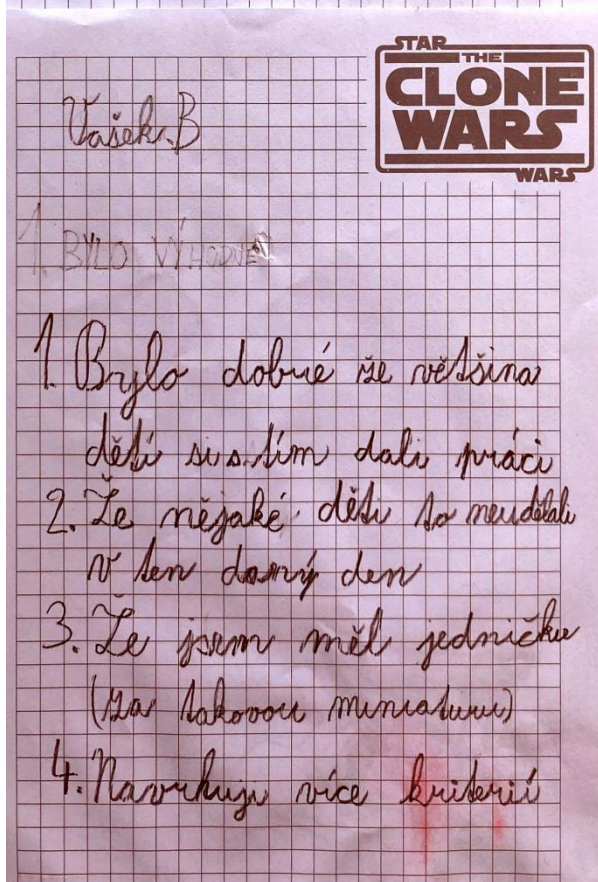 STAR
THE
CLONE
WARS
WARS
Vašek.B
1. BYLO VÝHODNÉ
1. Bylo dobré že většina
dětí si s tím dali práci
2. Že nějaké děti to neudělali
v ten daný den
3. Že jsem měl jedničku
(za takovou miniaturu)
4. Navrhuji více kriterií